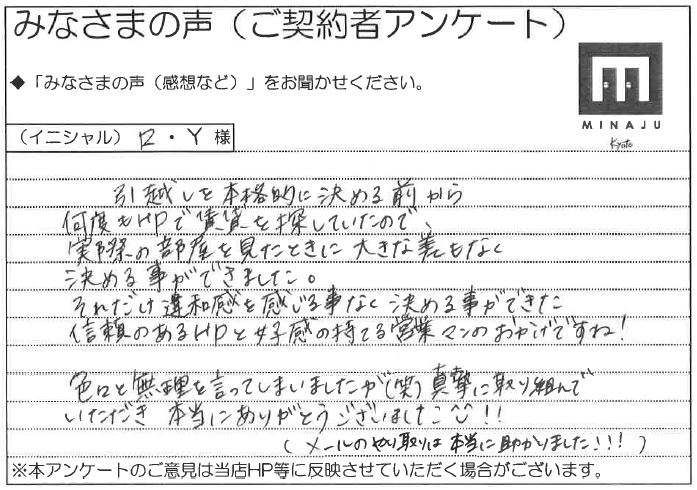 みなさまの声（ご契約者アンケート）
◆「みなさまの声（感想など）」をお聞かせください。
MINAJU
Kyoto
（イニシャル） R・Y 様
引越しを本格的に決める前から
何度もHPで賃貸を探していたので、
実際の部屋を見たときに大きな差もなく
決める事ができました。
それだけ違和感を感じる事なく決める事ができた
信頼のあるHPと好感の持てる営業マンのおかげですね!
色々と無理を言ってしまいましたが(笑)真摯に取り組んで
いただき 本当にありがとうございました!!
(メールのやり取りは本当に助かりました!!!)
※本アンケートのご意見は当店HP等に反映させていただく場合がございます。